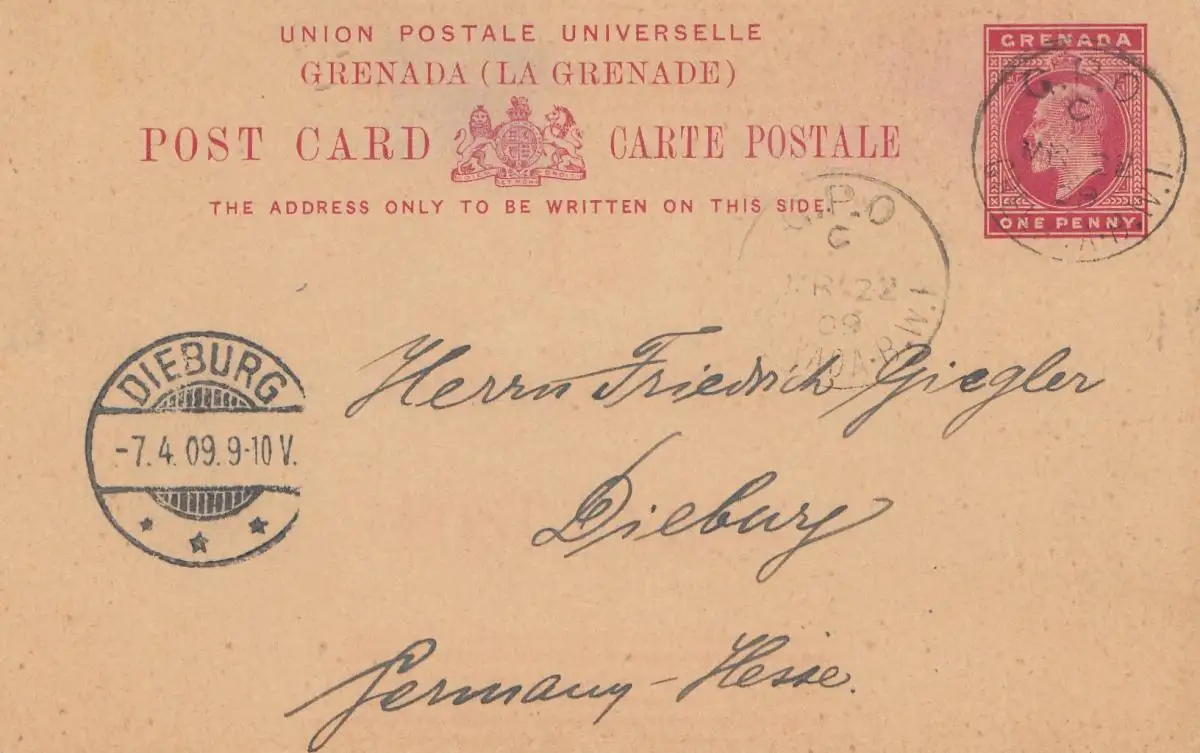 UNION POSTALE UNIVERSELLE
GRENADA (LA GRENADE)
POST CARD CARTE POSTALE
THE ADDRESS ONLY TO BE WRITTEN ON THIS SIDE.
GRENADA
ONE PENNY
G.P.O
C
22
W.I.
G.P.O
C
MR 22
09
W.I.
DIEBURG
-7.4.09.9-10 V.
Herrn Friedrich Giegler
Dieburg
Germany - Hesse.